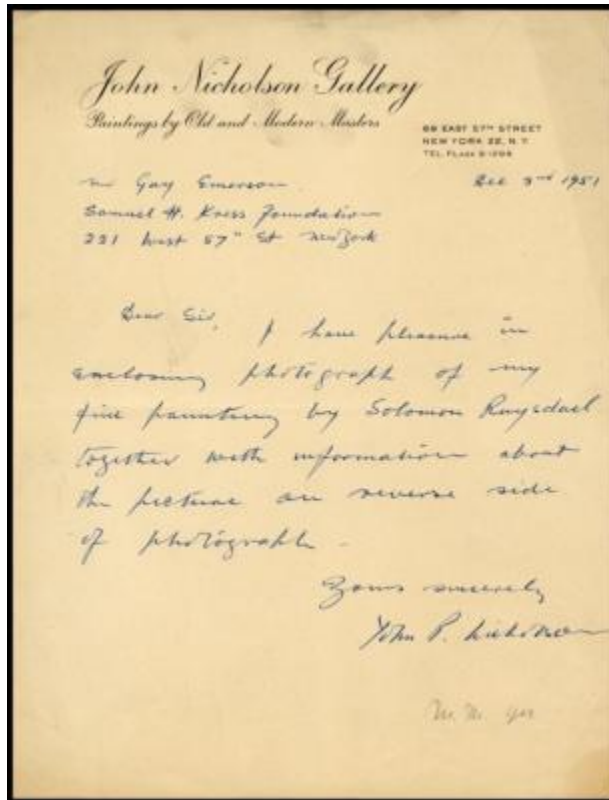 John Nicholson Gallery
Paintings by Old and Modern Masters
69 EAST 57TH STREET
NEW YORK 22, N.Y.
TEL. PLAZA
Dec 3rd 1951
Mr Gay Emerson
Samuel H. Kress Foundation
221 West 57" St New York
Dear Sir,
I have pleasure in
enclosing photograph of my
fine painting by Solomon Ruysdael
together with information about
the picture on reverse side
of photograph -
Yours sincerely
John P. Nicholson